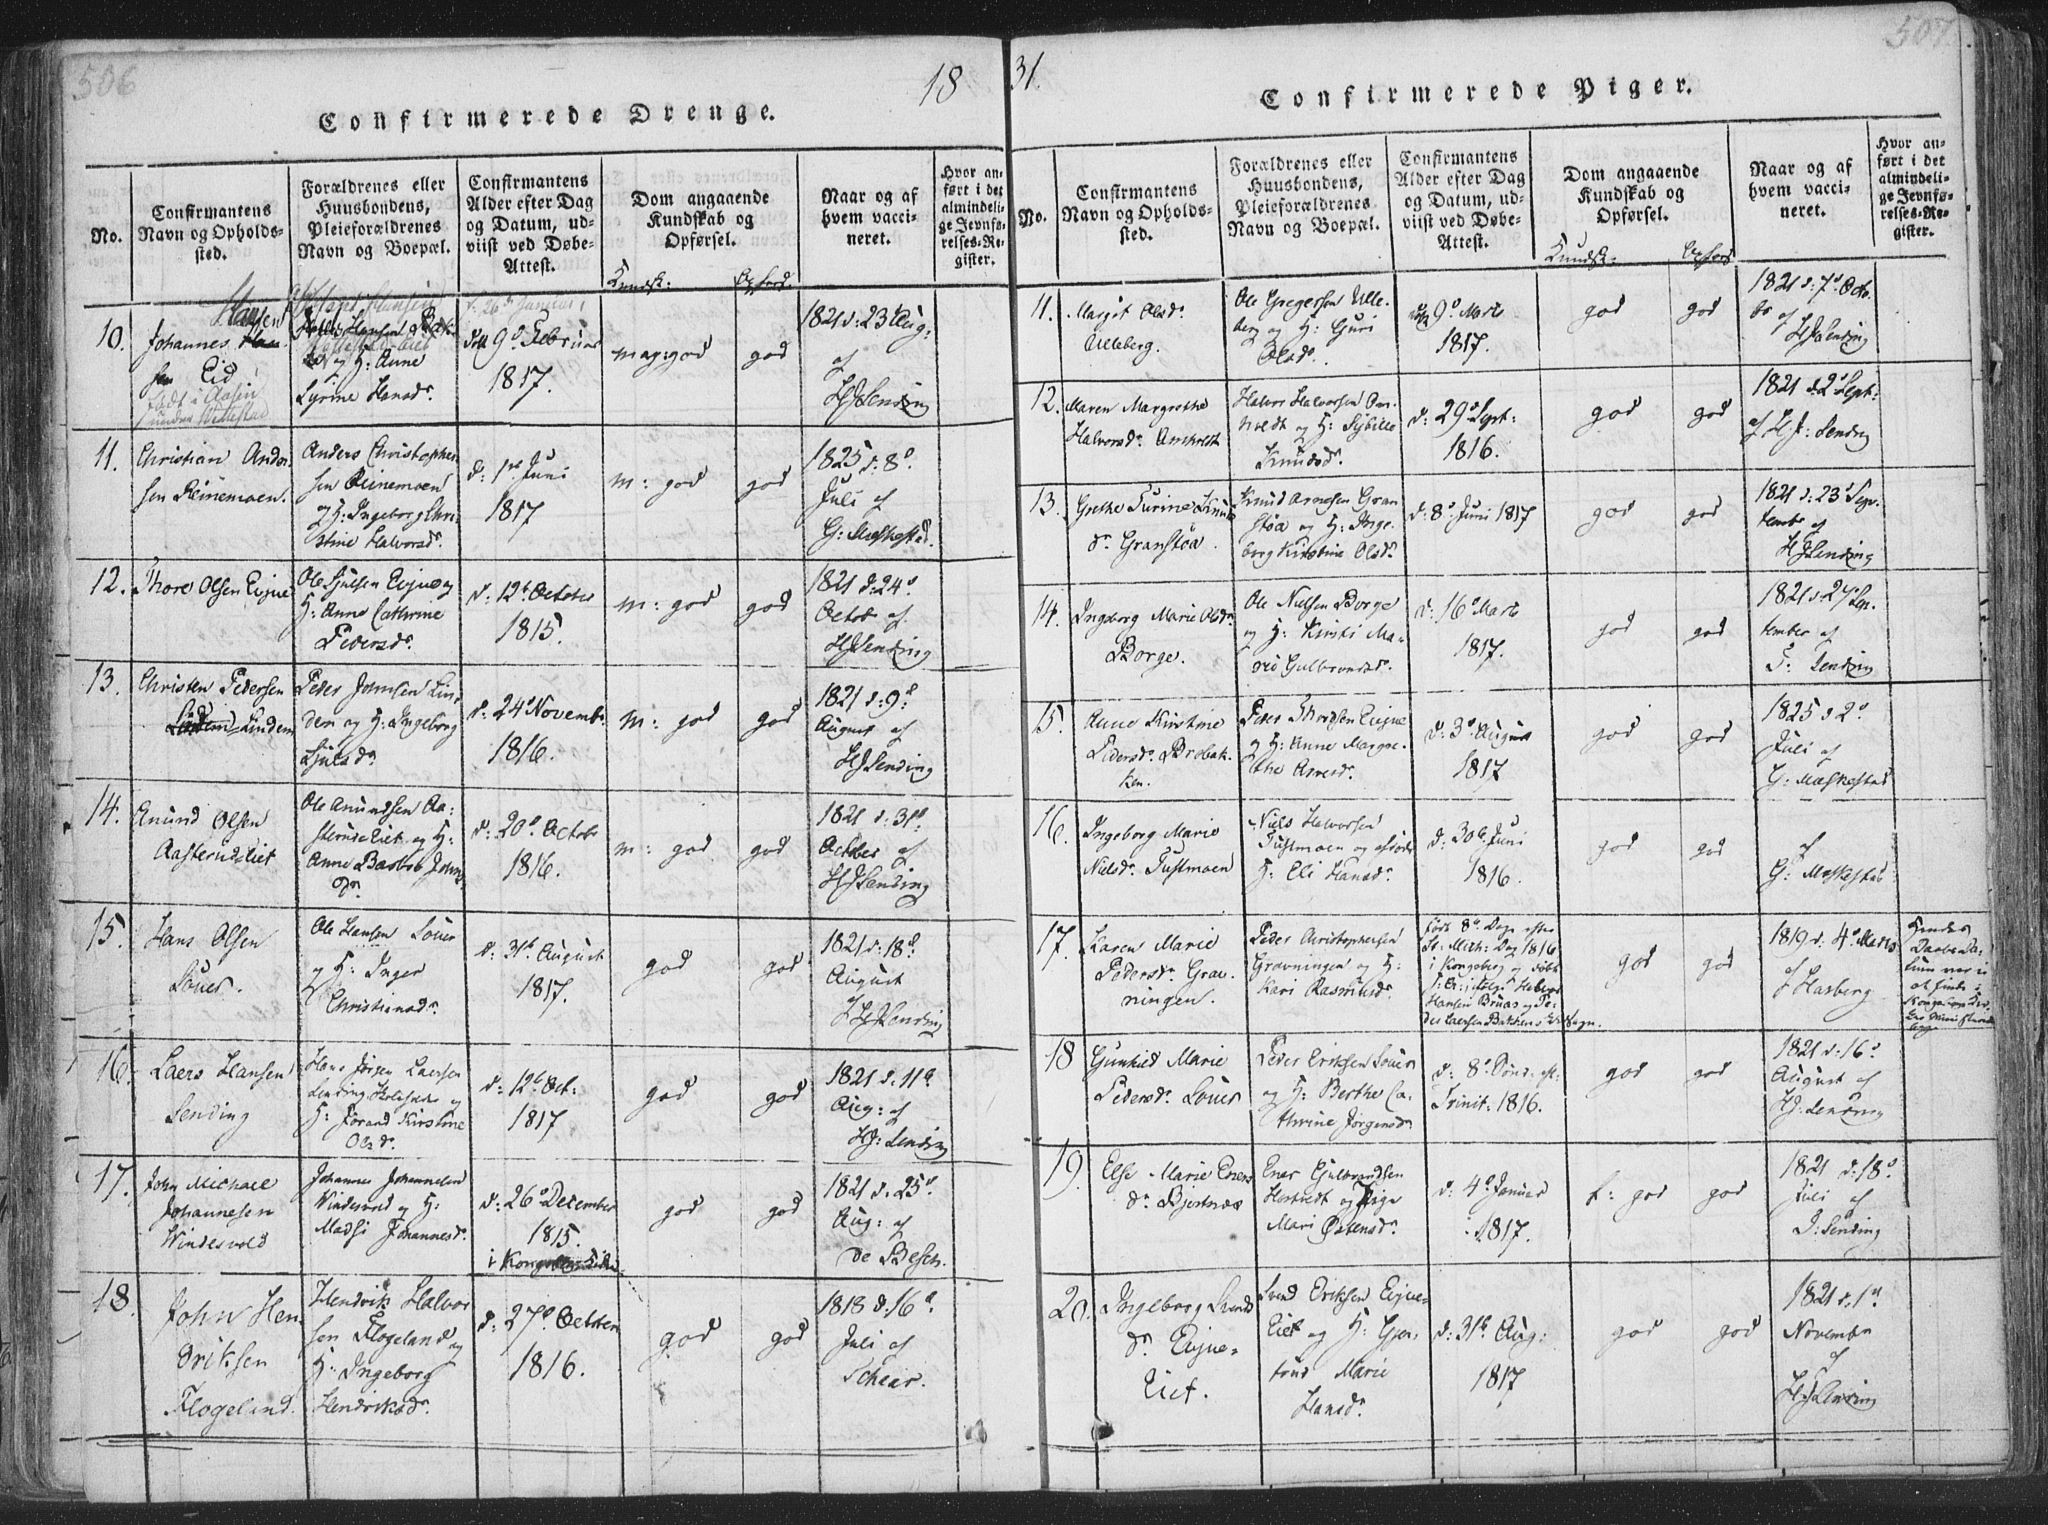 506
18
Confirmerede Drenge.
No.
Confirmantens
Navn og Opholds-
sted.
Forældrenes eller
Huusbondens,
Pleieforældrenes
Navn og Boepæl.
Confirmantens
Alder efter Dag
og Datum, ud-
viist ved Døbe-
Attest.
Dom angaaende
Kundskab og
Opførsel.
Kundsk:
Opførs:
Naar og af
hvem vacci-
neret.
Hvor an-
ført i det
almindeli-
ge Jevnfø-
relses-Re-
gister.
10.
Johannes
Eid
og H: Anne
Lyrine Hansdr.
d. 26de Januar
9de Februar
1817.
mag: god
god
1821 d: 23 Aug:
af
HJSending
11.
Christian Ander
sen Reinemoen.
Anders Christopher
sen Reinemoen
og H: Ingeborg Chri-
stine Halvorsdr.
d: 1ste Juni
1817
m: god
god
1825 d: 8de
Juli af
G: Maskestad.
12.
Thore Olsen Evjue
Ole Sjulsen Evjue og
H: Anne Cathrine
Pedersdr.
d: 12te October
1815.
m: god
god
1821 d: 24de
Octob af
HJSending
13.
Christen Pedersen
Lindem
Peder Johnsen Lin
dem og H: Ingeborg
Sjulsdr.
d: 24de Novembr.
1816.
m: god
god
1821 d: 9de
August af
HJSending
14.
Anund Olsen
Aasterudeiet
Ole Anundsen Aa-
sterudeiet og H:
Anne Barbro Johns
dr.
d: 20de Octobr
1816.
m: god
god
1821 d: 31te
October af
HJSending
15.
Hans Olsen
Louer.
Ole Hansen Louer
og H: Inger
Christiansdr.
d: 31te August
1817.
god
god
1821 d: 18de
August
af HJSending
16.
Laers Hansen
Sending
Hans Jørgen Laersen
Sending og
H: Jørand Kirstine
Olsdr.
d: 12te Oct:
1817
god
god
1821 d: 11te
Aug: af
HJ: Sending
17.
John Michael
Johannesen
Windesvold
Johannes Johannesen
Windesvold og H:
Madsi Johannesdr.
d: 26de December
1815.
i
god
god
1821 d: 25de
Aug: af
de Besch.
18.
John Hen
driksen
Flogeland.
Hendrik Halvor
sen Flogeland og
H: Ingeborg
Hendriksdr.
d: 27de October
1816.
god
god
1818 d: 16de
Juli af
Scheer.
507
31.
Confirmerede Piger.
No.
Confirmantens
Navn og Opholds-
sted.
Forældrenes eller
Huusbondens,
Pleieforældrenes
Navn og Boepæl.
Confirmantens
Alder efter Dag
og Datum, ud-
viist ved Døbe-
Attest.
Dom angaaende
Kundskab og
Opførsel.
Kundsk:
Opførs
Naar og af
hvem vacci-
neret.
Hvor an-
ført i det
almindeli-
ge Jevnfø-
relses-Re-
gister.
11.
Margit Olsdr.
Ulleberg.
Ole Gregersen Ulle-
berg og H: Guri
Olsdr.
9de Marts
1817.
god
god
1821 d: 7de Octo
br af
HJSending
12.
Maren Margrethe
Halvorsdr. Omholt
Halvor Halvorsen Om-
holdt og H: Sybille
Knudsdr.
d: 29de Sept:
1816.
god
god
1821 d: 2de Sept:
af H.J: Sending
13.
Grethe Turine Knuds
dr. Granstøa.
Knud Arnesen Gran
støa og H: Inge-
borg Kirstine Olsdr.
d: 8de Juni 1817
god
god
1821 d: 23de Sep-
tember af
HJSending
14.
Ingeborg Marie Olsdr.
Borge.
Ole Nielsen Borge
og H: Kirsti Ma-
rie Gulbrandsdr.
d: 16de Marts
1817.
god
god
1821 d: 27de Sep-
tember af
J: Sending
15.
Anne Kirstine
Pedersdr. Brobak-
ken.
Peder Thordsen Evjue
og H: Anne Margre-
the Arnesdr.
d: 3de August
1817
god
god
1825 d 2de
Juli af
G: Maskestad
16.
Ingeborg Marie
Nielsdr. Tuftmoen
Niels Halvorsen
Tuftmoen og afdøde
H: Eli Hansdr.
d: 30te Juni
1816.
god
god
af
G: Maskestad
17.
Karen Marie
Pedersdr. Grav-
ningen.
Peder Christophersen
Gravningen og H:
Kari Rasmusdr.
født 8de Dag efter
St: Mich: Dag 1816
i Kongsberg og døbt
god
god
1819 d. 4de Marts
af Hasberg
18
Gunhild Marie
Pedersdr. Louer
Peder Eriksen Louer
og H: Berthe Ca-
thrine Jørgensdr.
d: 8de Sønd: eft:
Trinit: 1816.
god
god
1821 d: 16de
August af
HJ: Sending
19.
Else Marie Eners
dr. Bjertnæs
Ener Gulbrandsen
og Pige
Mari Østensdr.
d: 4de Januar
1817.
t: god
god
1821 d: 18de
Juli af
J: Sending
20.
Ingeborg Svends
dr. Evjue-
Eiet.
Svend Eriksen Evjue-
Eiet og H: Gjer-
trud Marie
Hansdr.
d: 31te Aug:
1817
god
god
1821 d. 1ste
November
af
H.J. Sending